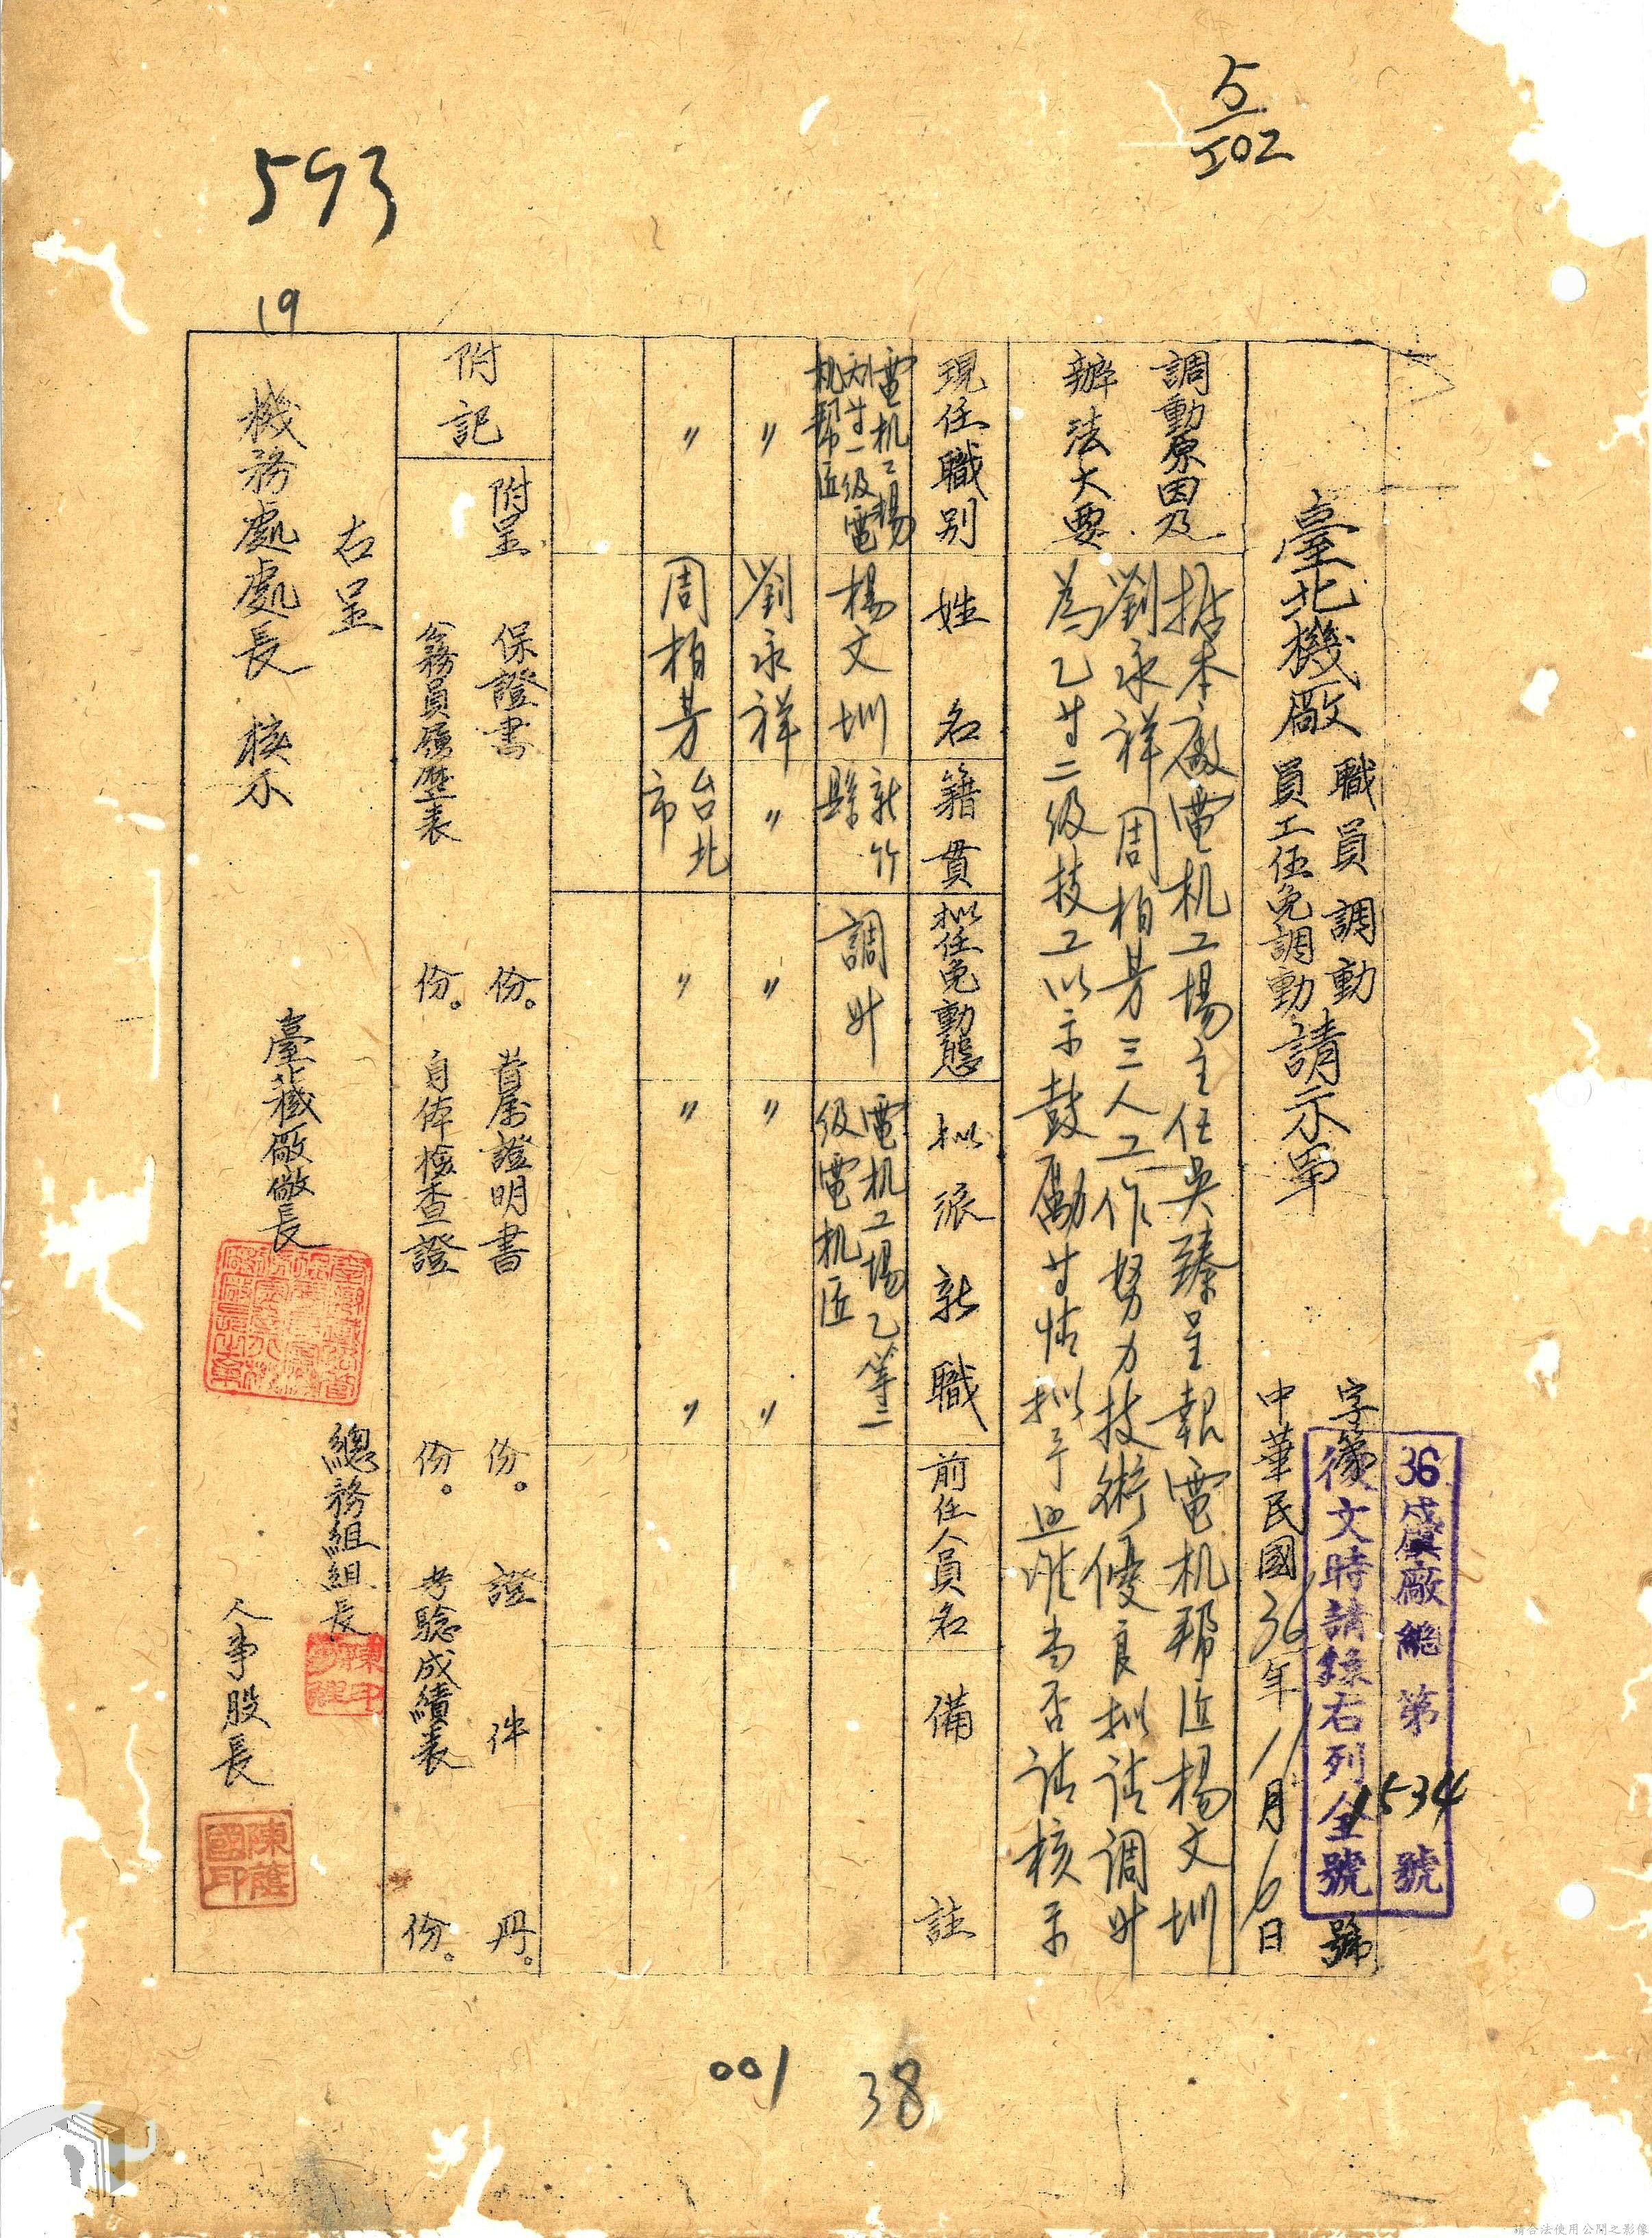 5/502
593
19
36 廠總第1534號
復文時請錄右列全號
臺北機廠 職員調動 員工任免調動 請示單
字第 號
中華民國36年11月6日
調動原因及
辦法大要
據本廠電机工場主任吳臻呈報電机帮匠楊文圳
劉永祥周柏芳三人工作努力技術優良拟請調升
為乙等二級技工以示鼓勵等情拟予照准當否請核示
現任職別
姓名
籍貫
拟任免動態
拟派新職
前任人員名
備註
電机工場
一級電
机帮匠
楊文圳
新竹
縣
調升
電机工場乙等二
級電机匠
〃
劉永祥
〃
〃
〃
〃
〃
周柏芳
台北
市
〃
〃
〃
附記
附呈 保證書 份。眷屬證明書 份。證件 册。
公務員履歷表 份。自体檢查證 份。考驗成績表 份。
右呈
機務處處長 核示
臺北機廠廠長
總務組組長
人事股長
陳蔭國印
001
38
請合法使用公開之影像